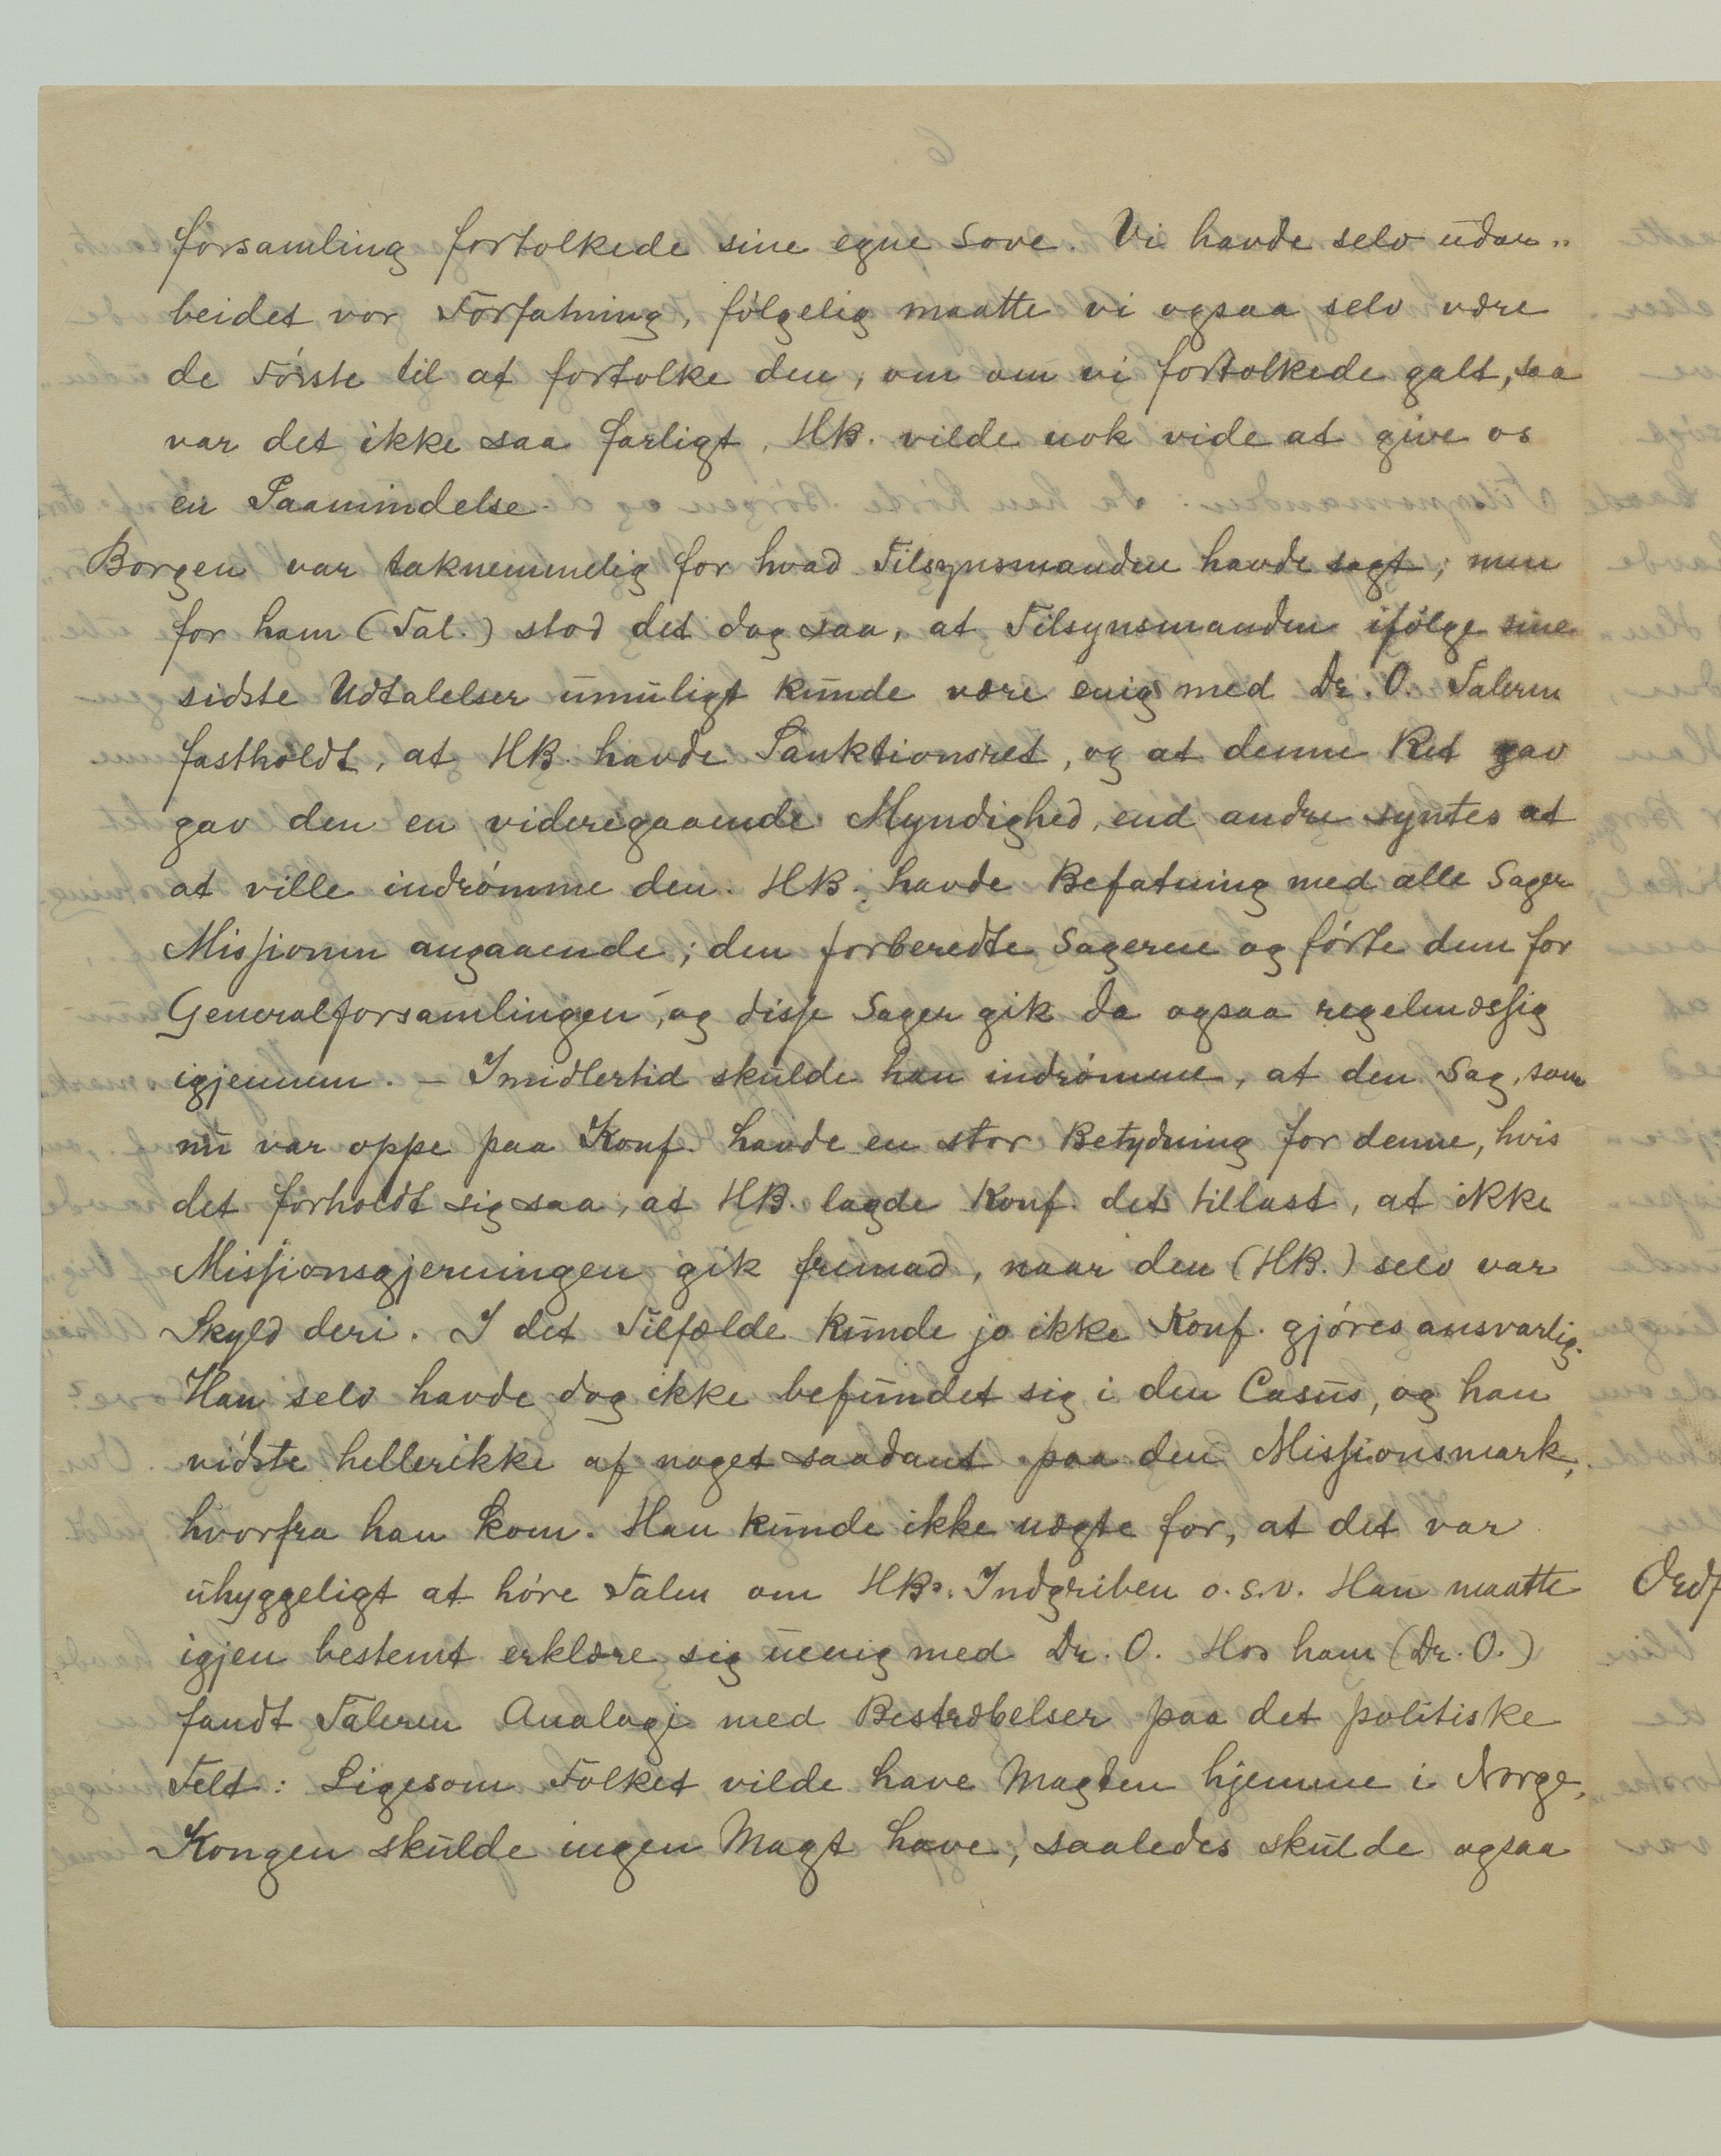 forsamling fortolkede sine egne Love. Vi havde selv udar„
beidet vor Forfatning, følgelig maatte vi ogsaa selv være
de Første til at fortolke den, om om vi fortolkede galt, saa
var det ikke saa farligt, HB. vilde nok vide at give os
en Paamindelse.
Borgen var taknemmelig for hvad Tilsynsmanden havde sagt; men
for ham (Tal.) stod det dog saa, at Tilsynsmanden ifølge sine
sidste Udtalelser umuligt kunde være enig med Dr. O. Taleren
fastholdt, at HB. havde Sanktionsret, og at denne Ret gav
gav den en videregaaende Myndighed, end andre syntes at
at ville indrømme den. HB. havde Befatning med alle Sager
Missionen angaaende; den forberedte Sagerne og førte dem for
Generalforsamlingen, og disse Sager gik da ogsaa regelmæssig
igjennem. – Imidlertid skulde han indrømme, at den Sag, som
nu var oppe paa Konf. havde en stor Betydning for denne, hvis
det forholdt sig saa, at HB. lagde Konf. det tillast, at ikke
Missionsgjerningen gik fremad, naar den (HB.) selv var
Skyld deri. I det Tilfælde kunde jo ikke Konf. gjøres ansvarlig.
Han selv havde dog ikke befundet sig i den Casus, og han
vidste hellerikke af noget saadant paa den Missionsmark,
hvorfra han kom. Han kunde ikke nægte for, at det var
uhyggeligt at høre Talen om HBs. Indgriben o.s.v. Han maatte
igjen bestemt erklære sig uenig med Dr. O. Hos ham (Dr. O.)
fandt Taleren Analogi med Bestræbelser paa det politiske
Felt: Ligesom Folket vilde have Magten hjemme i Norge,
Kongen skulde ingen Magt have, saaledes skulde ogsaa